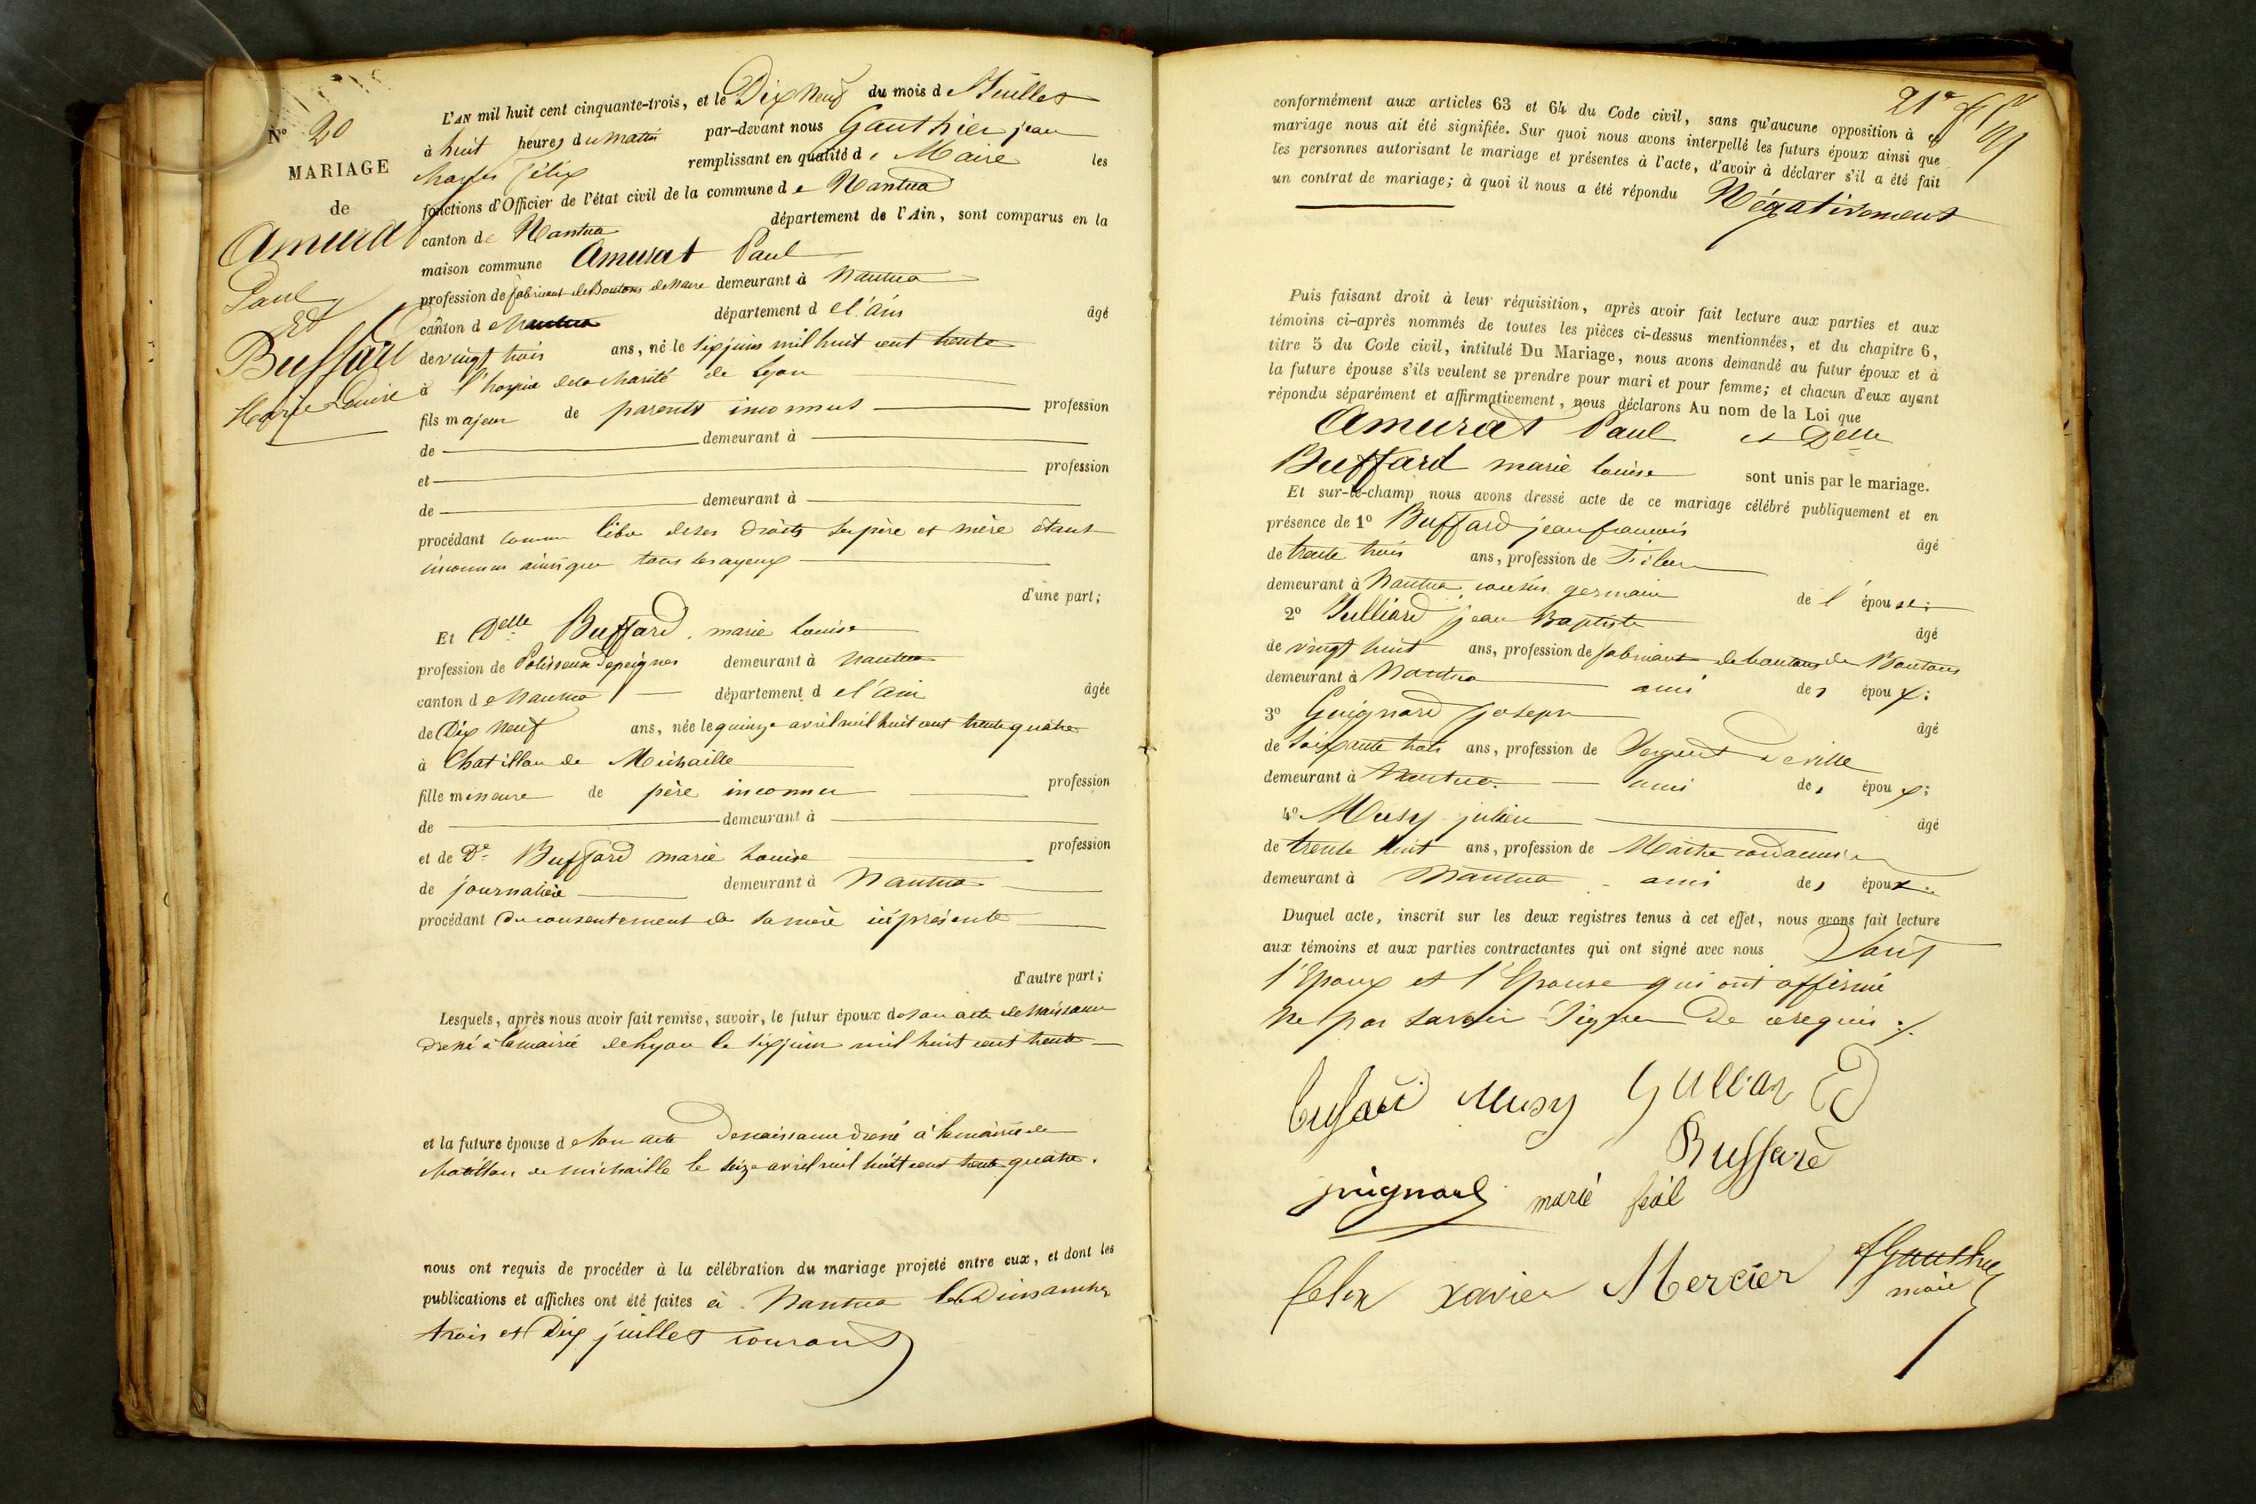 N° 20
MARIAGE
de
Amurat
Paul
Et
Buffard
Marie Louise
L'AN mil huit cent cinquante-trois, et le Dix Neuf du mois d Juillet
à huit heures du Matin par-devant nous Gauthier jean
Charles Félix remplissant en qualité de Maire les
fonctions d'Officier de l'état civil de la commune de Nantua
canton de Nantua département de l'Ain, sont comparus en la
maison commune Amurat Paul
profession de fabricant de Boutons de Nacre demeurant à Nantua
canton de Nantua département de l'ain âgé
de vingt trois ans, né le six juin mil huit cent trente
à l'hospice de la charité de Lyon
fils majeur de parents inconnus profession
de demeurant à
et profession
de demeurant à
procédant comme libre de ses droits ses père et mère étant
inconnus ainsi que tous les ayeux
d'une part;
Et Delle Buffard marie Louise
profession de Polisseuse de peignes demeurant à Nantua
canton de Nantua département de l'ain âgée
de Dix neuf ans, née le quinze avril mil huit cent trente quatre
à Chatillon de Michaille
fille mineure de père inconnu profession
de demeurant à
et de De Buffard marie Louise profession
de journalière demeurant à Nantua
procédant du consentement de sa mère ici présente
d'autre part;
Lesquels, après nous avoir fait remise, savoir, le futur époux de son acte de Naissance
dressé à la mairie de Lyon le six juin mil huit cent trente
et la future épouse de son acte de naissance dressé à la mairie de
Chatillon de Michaille le seize avril mil huit cent trente quatre.
nous ont requis de procéder à la célébration du mariage projeté entre eux, et dont les
publications et affiches ont été faites à Nantua les Dimanches
trois et Dix juillet courant
21e
conformément aux articles 63 et 64 du Code civil, sans qu'aucune opposition à ce
mariage nous ait été signifiée. Sur quoi nous avons interpellé les futurs époux ainsi que
les personnes autorisant le mariage et présentes à l'acte, d'avoir à déclarer s'il a été fait
un contrat de mariage; à quoi il nous a été répondu Négativement
Puis faisant droit à leur réquisition, après avoir fait lecture aux parties et aux
témoins ci-après nommés de toutes les pièces ci-dessus mentionnées, et du chapitre 6,
titre 5 du Code civil, intitulé Du Mariage, nous avons demandé au futur époux et à
la future épouse s'ils veulent se prendre pour mari et pour femme; et chacun d'eux ayant
répondu séparément et affirmativement, nous déclarons Au nom de la Loi que
Amurat Paul et Delle
Buffard marie Louise sont unis par le mariage.
Et sur-le-champ nous avons dressé acte de ce mariage célébré publiquement et en
présence de 1° Buffard jean françois âgé
de trente trois ans, profession de
demeurant à Nantua, cousin germain de l'épouse;
2° Julliard jean Baptiste âgé
de vingt huit ans, profession de fabricant de boutons de Boutons
demeurant à Nantua ami des époux;
3° Guignard Joseph âgé
de soixante trois ans, profession de Sergent de ville
demeurant à Nantua. ami des époux;
4° Musy julien âgé
de trente huit ans, profession de Maitre cordonnier
demeurant à Nantua ami des époux.
Duquel acte, inscrit sur les deux registres tenus à cet effet, nous avons fait lecture
aux témoins et aux parties contractantes qui ont signé avec nous Sauf
l'Epoux et l'Epouse qui ont affirmé
ne pas savoir Signer De ce requis ./.
bufard Musy Julliard
Buffard
guignard marie
felix xavier Mercier fGauthier
maire